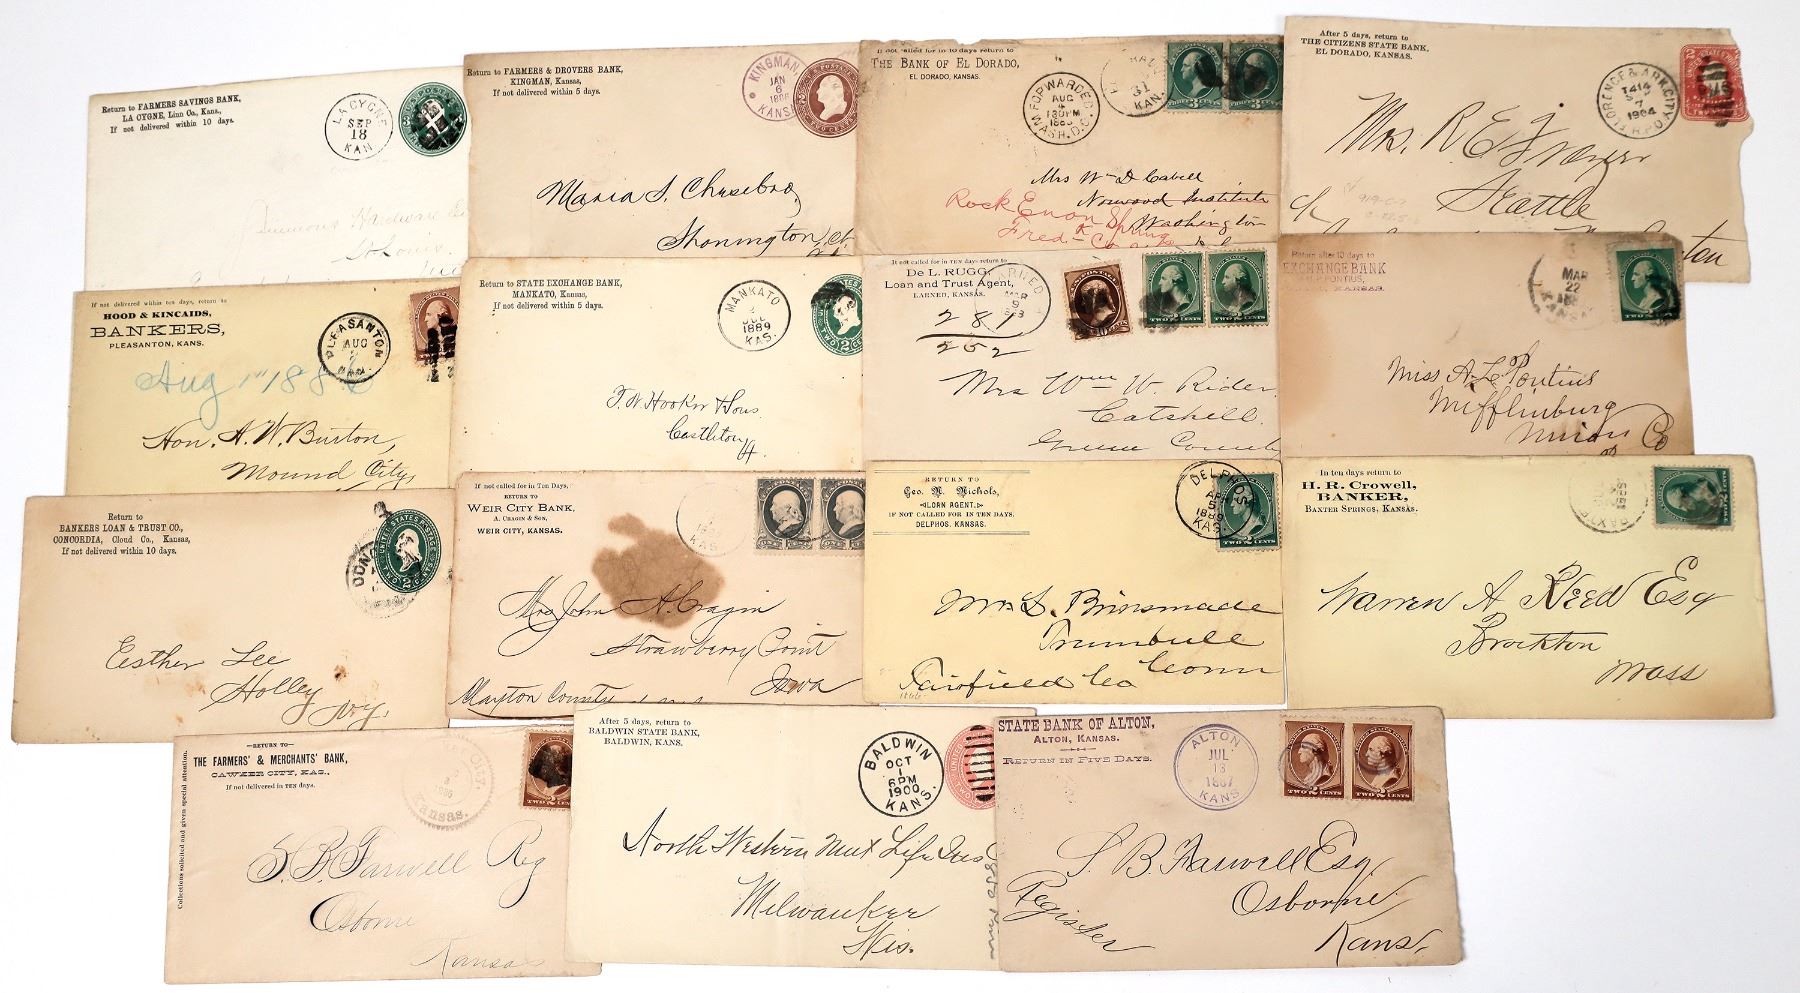 Return to FARMERS SAVINGS BANK,
LA CYGNE, Linn Co., Kans.,
If not delivered within 10 days.
LA CYGNE
SEP
18
KAN.
Simmons Hardware Co
St Louis
Return to FARMERS & DROVERS BANK,
KINGMAN, Kansas,
If not delivered within 5 days.
KINGMAN,
JAN
6
KANSAS
Maria S. Chesebro,
If not called for in 10 days return to
THE BANK OF EL DORADO,
EL DORADO, KANSAS.
FORWARDED
AUG
WASH.D.C.
31
KAN.
THREE CENTS
Mrs Wm D Cabell
Norwood Institute
Washington
Rock Enon Spring
Fred- Co
After 5 days, return to
THE CITIZENS STATE BANK,
EL DORADO, KANSAS.
FLORENCE & ARK. CITY
7
1904
R.P.O.
Mrs. R E Frazer
Seattle
If not delivered within ten days, return to
HOOD & KINCAIDS,
BANKERS,
PLEASANTON, KANS.
PLEASANTON
AUG
Aug 1st 188
Hon. A. W. Burton,
Mound City,
Return to STATE EXCHANGE BANK,
MANKATO, Kansas,
If not delivered within 5 days.
MANKATO
1889
KAS.
T. W. Hooker & Sons.
Castleton
If not called for in TEN days return to
DE L. RUGG,
Loan and Trust Agent,
LARNED, KANSAS.
LARNED
MAR
9
287
252
TWO CENTS
Mrs Wm W. Rider
Catskill
Greene County
Return after 10 days to
EXCHANGE BANK
PONTIUS,
KANSAS.
MAR
22
KANSAS
Miss A. L. Pontius
Mifflinburg
Union Co
Return to
BANKERS LOAN & TRUST CO.,
CONCORDIA, Cloud Co., Kansas,
If not delivered within 10 days.
UNITED STATES POSTAGE
TWO 2 CENTS
Esther Lee
Holley
N.Y.
If not called for in Ten Days,
RETURN TO
WEIR CITY BANK,
A. CRAGIN & SON,
WEIR CITY, KANSAS.
KAS
Mrs John A. Cragin
Strawberry Point
Iowa
Clayton County
RETURN TO
Geo. N. Nichols,
LOAN AGENT.
IF NOT CALLED FOR IN TEN DAYS.
DELPHOS, KANSAS.
DELPHOS
APR
5
1889
KAS.
TWO CENTS
Mrs L. Brinsmade
Trumbull
Fairfield Co Conn
In ten days return to
H. R. Crowell,
BANKER,
BAXTER SPRINGS, KANSAS.
Warren A Reed Esq
Brockton
Mass
—RETURN TO—
THE FARMERS' & MERCHANTS' BANK,
CAWKER CITY, KAS.,
If not delivered in TEN days.
Collections solicited and given special attention.
Kansas.
TWO CENTS
S. B. Farwell Reg
Osborne
Kansas
After 5 days, return to
BALDWIN STATE BANK,
BALDWIN, KANS.
BALDWIN
OCT
1
6 PM
1900
KANS.
North Western Mut Life Ins
Milwaukee
Wis.
STATE BANK OF ALTON,
ALTON, KANSAS.
RETURN IN FIVE DAYS.
ALTON
JUL
13
1887
KANS
TWO 2 CENTS
TWO 2 CENTS
S. B. Farwell Esq,
Register
Osborne
Kans,